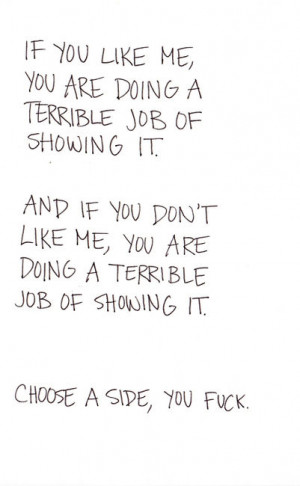 IF YOU LIKE ME,
YOU ARE DOING A
TERRIBLE JOB OF
SHOWING IT.
AND IF YOU DON'T
LIKE ME, YOU ARE
DOING A TERRIBLE
JOB OF SHOWING IT.
CHOOSE A SIDE, YOU FUCK.